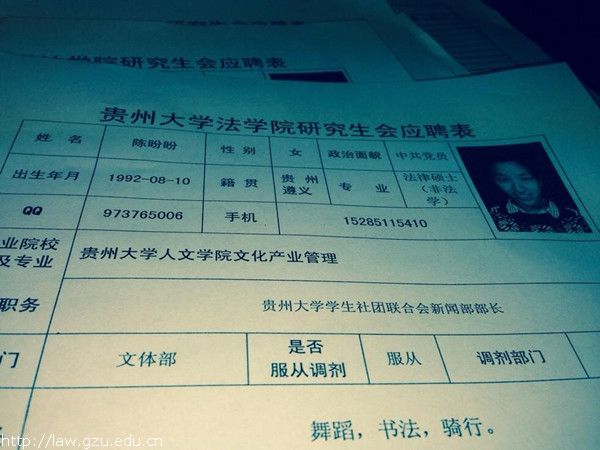 研究生会应聘表
学院研究生会应聘表
贵州大学法学院研究生会应聘表
姓 名 陈盼盼 性 别 女 政治面貌 中共党员
出生年月 1992-08-10 籍 贯 贵州遵义 专 业 法律硕士（非法学）
QQ 973765006 手机 15285115410
业院校及专业 贵州大学人文学院文化产业管理
职务 贵州大学学生社团联合会新闻部部长
门 文体部 是否服从调剂 服从 调剂部门
舞蹈，书法，骑行。
http://law.gzu.edu.cn